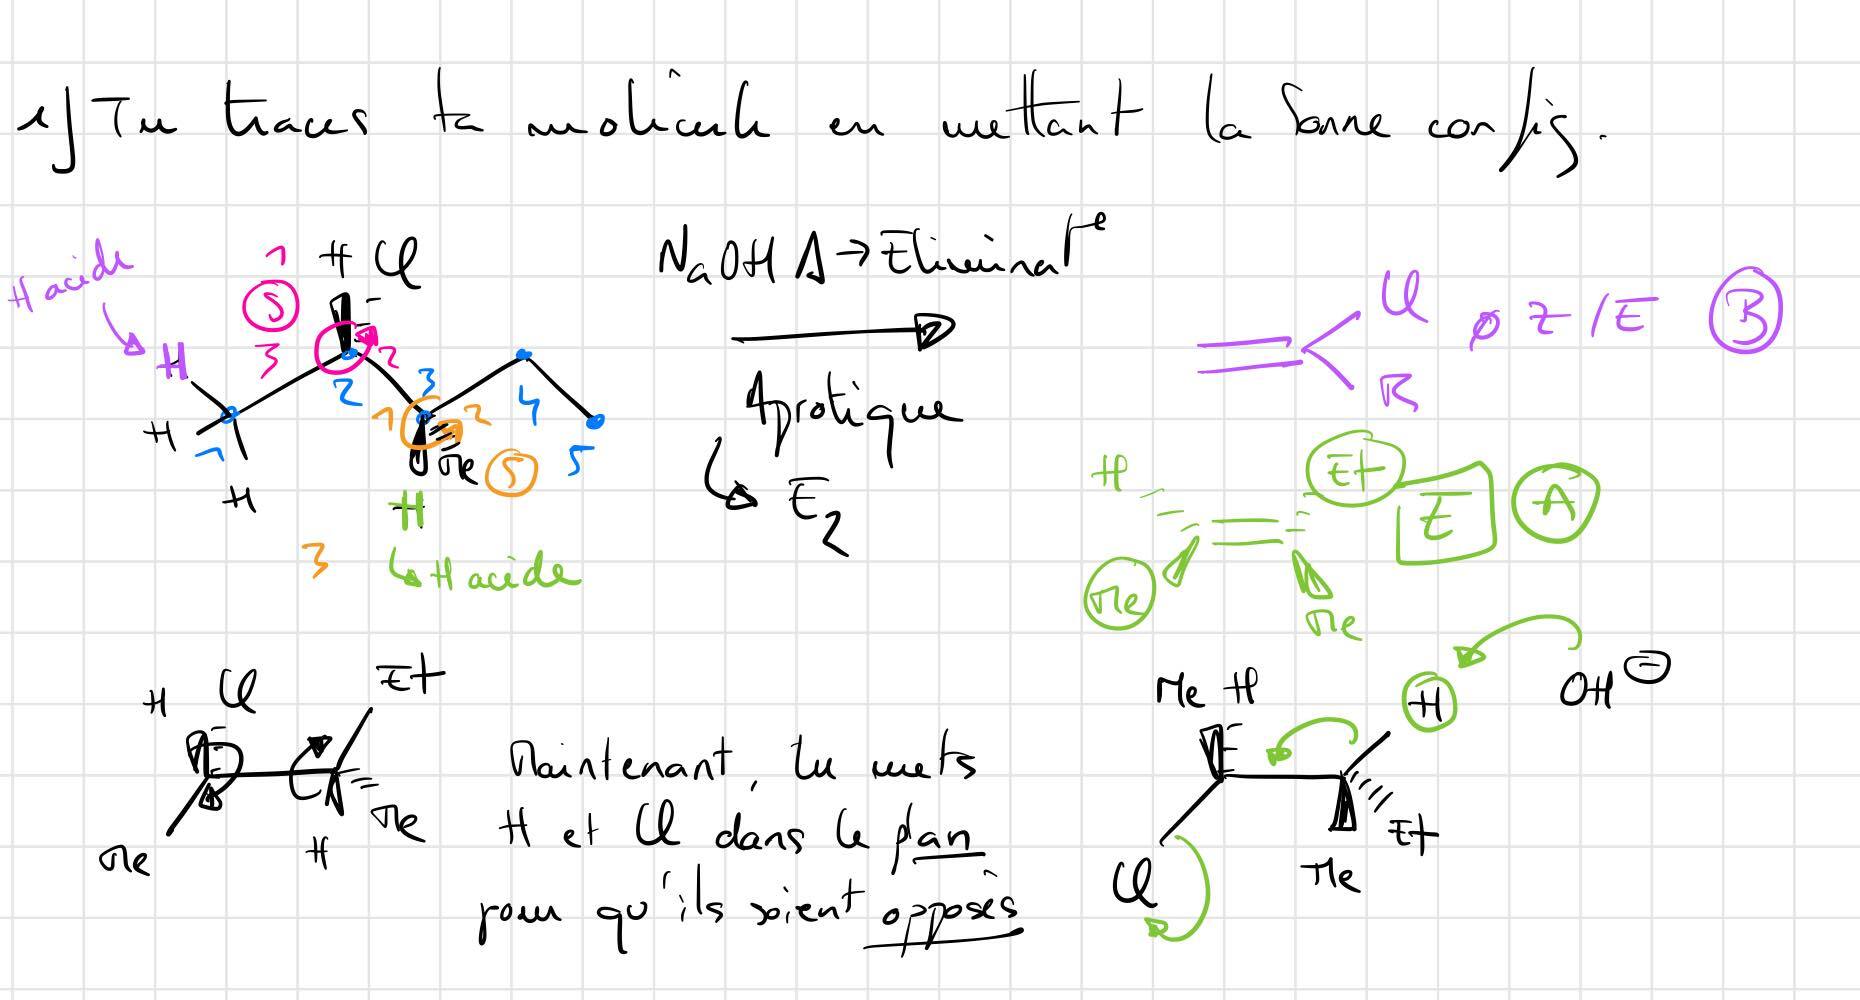 1) Tu traces ta molécule en mettant la bonne config.
H acide
H
H
H
1
S
3
H Cl
2
1
2
3
1
2
4
5
Me
S
H
H acide
3
NaOH Δ → Eliminat°
Aprotique
↳ E2
Cl
R
∅ Z/E B
H
Me
Et
Me
E A
H Cl
Et
Me
H
Me
Maintenant, tu mets
H et Cl dans le plan
pour qu'ils soient opposés
Me H
H
OH⊖
Cl
Me
Et